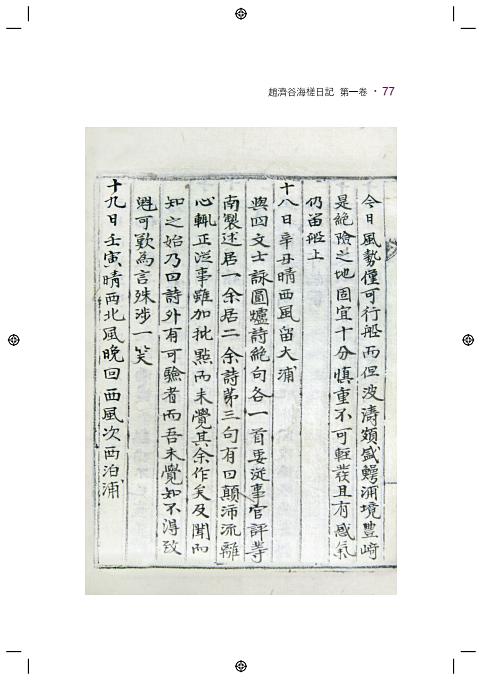 趙濟谷海槎日記 第一卷 · 77
今日風勢僅可行船而但波濤頗盛鰐浦境豊崎
是絶險之地固宜十分愼重不可輕發且有感氣
仍留船上
十八日辛丑晴西風留大浦
與四文士詠圓爐詩絶句各一首要從事官評等
南製述居一余居二余詩第三句有曰顚沛流離
心輒正從事雖加批點而未覺其余作矣及聞而
知之始乃曰詩外有可驗者而吾未覺知不得致
魁可歎爲言殊涉一笑
十九日壬寅晴西北風晩回西風次西泊浦